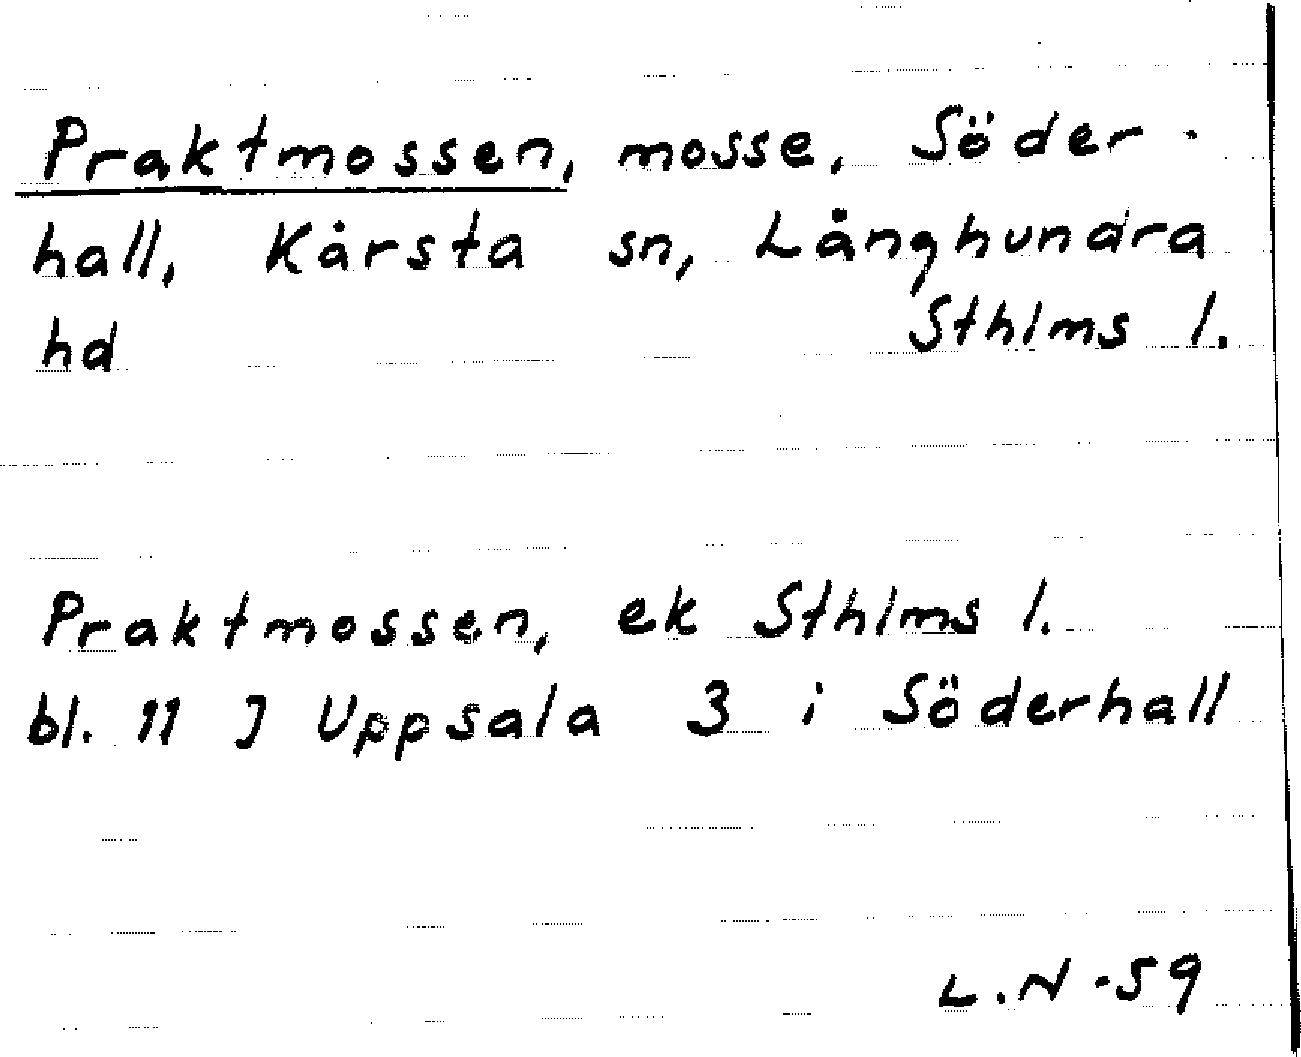 Praktmossen, mosse, Söder-
hall, Kårsta sn, Långhundra
hd Sthlms l.
Praktmossen, ek Sthlms l.
bl. 11 J Uppsala 3 i Söderhall
L.N -59